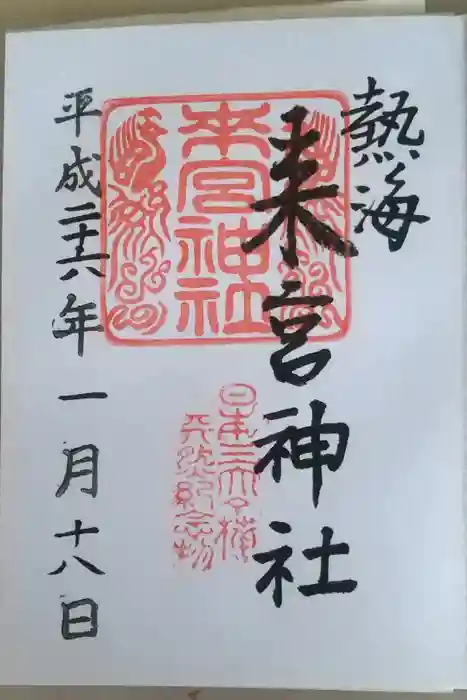 熱海
来宮神社
来宮神社
日本三大樟
天然紀念物
平成二十六年一月十八日